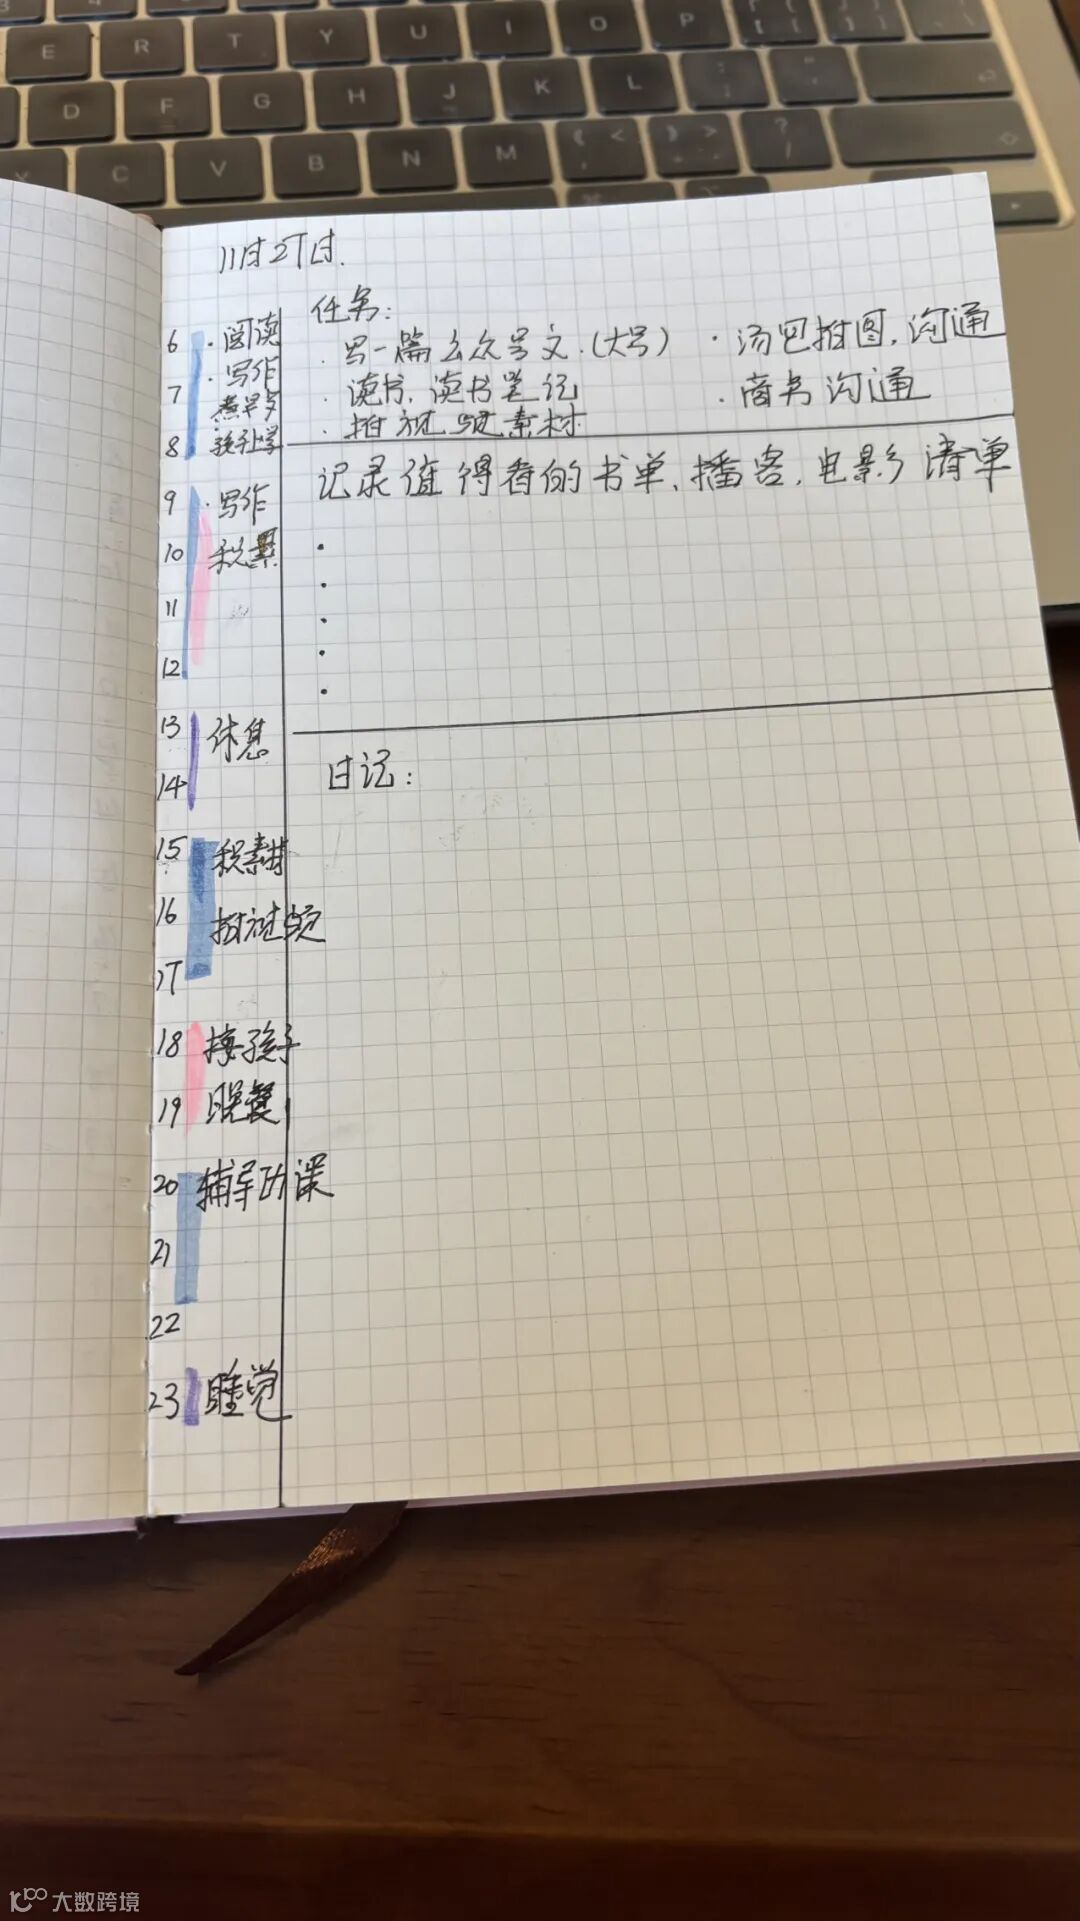 E R T Y U I O P
D F G H J K L
C V B N M < >
11月27日.
6 · 阅读
7 · 写作
煮早歺
8 孩子上学
9 · 写作
10 积累
11
12
13 休息
14
15 积素材
16 拍视频
17
18 接孩子
19 晚餐
20 辅导功课
21
22
23 睡觉
任务:
· 写一篇公众号文.(大号)
· 读书、读书笔记
· 拍视频素材
· 汤包拍图,沟通
· 商务沟通
记录值得看的书单、播客,电影清单
日记:
大数跨境